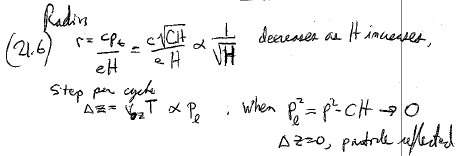 Radius
(21.6) r = cp_t/eH = c√CH/eH ∝ 1/√H decreases as H increases,
Step per cycle
Δz = v_z T ∝ p_l . When p_l² = p² - CH → 0
Δz=0, particle reflected